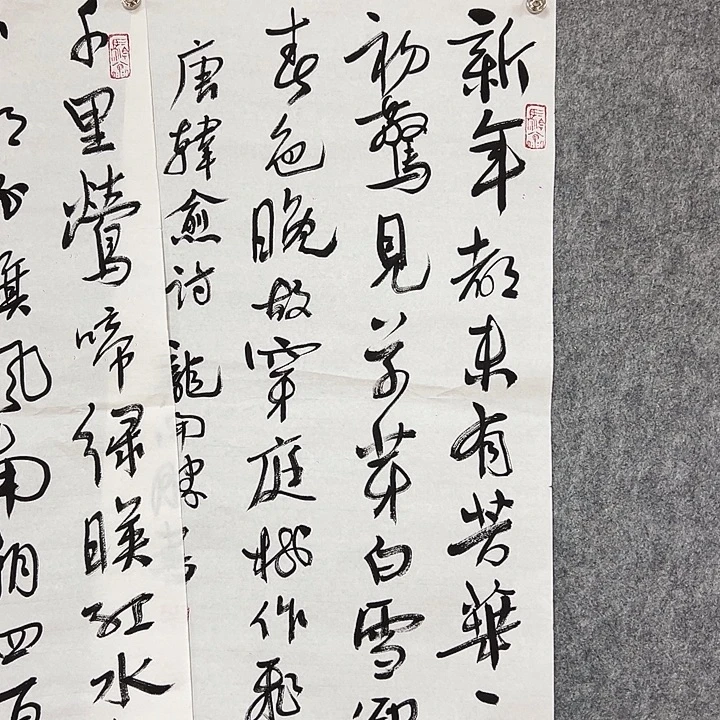 新年都未有芳華
初驚見草芽白雪卻
春色晚故穿庭樹作飛
唐韓愈詩 龍南陳
千里鶯啼綠暎紅水
旗風南朝四百